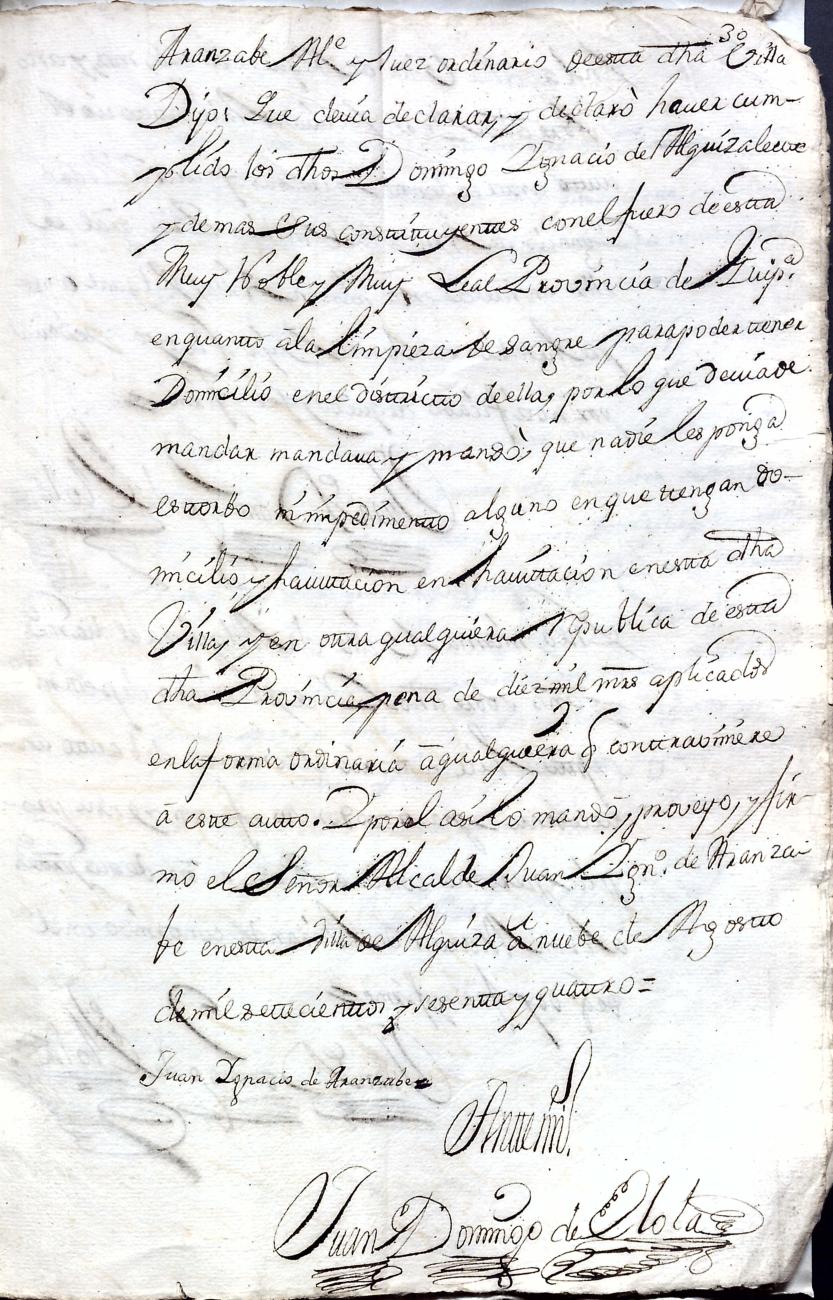 30
Aranzabe Alᵉ y Juez ordinario deesta dha Villa
Dijo: Que devia declarar, y declarò haver cum-
plido los dhos Domingo Ignacio de Alquizalete
y demas Sus constituyentes con el fuero de esta
Muy Noble y Muy Leal Provincia de Guipᵃ
enquanto âla limpieza de sangre para poder tener
Domicilio enel districto de ella, por lo que devia de
mandar mandava, y mandò, que nadie les ponga
estorbo ni impedimento alguno en que tengan do-
micilio y havitacion en havitacion enesta dha
Villa, y en otra qualquiera republica de esta
dha Provincia, pena de diez mil mrs aplicados
enla forma ordinaria â qualquiera q contraviniere
â este auto. Y por el asi lo mandò, proveyo, y fir-
mò el Señor Alcalde Juan Ignº. de Aranza-
be enesta Villa de Alquiza â nuebe de Agosto
de mil settecientos y sesenta y quattro=
Juan Ignacio de Aranzabe
Antte mi
Juan Domingo de